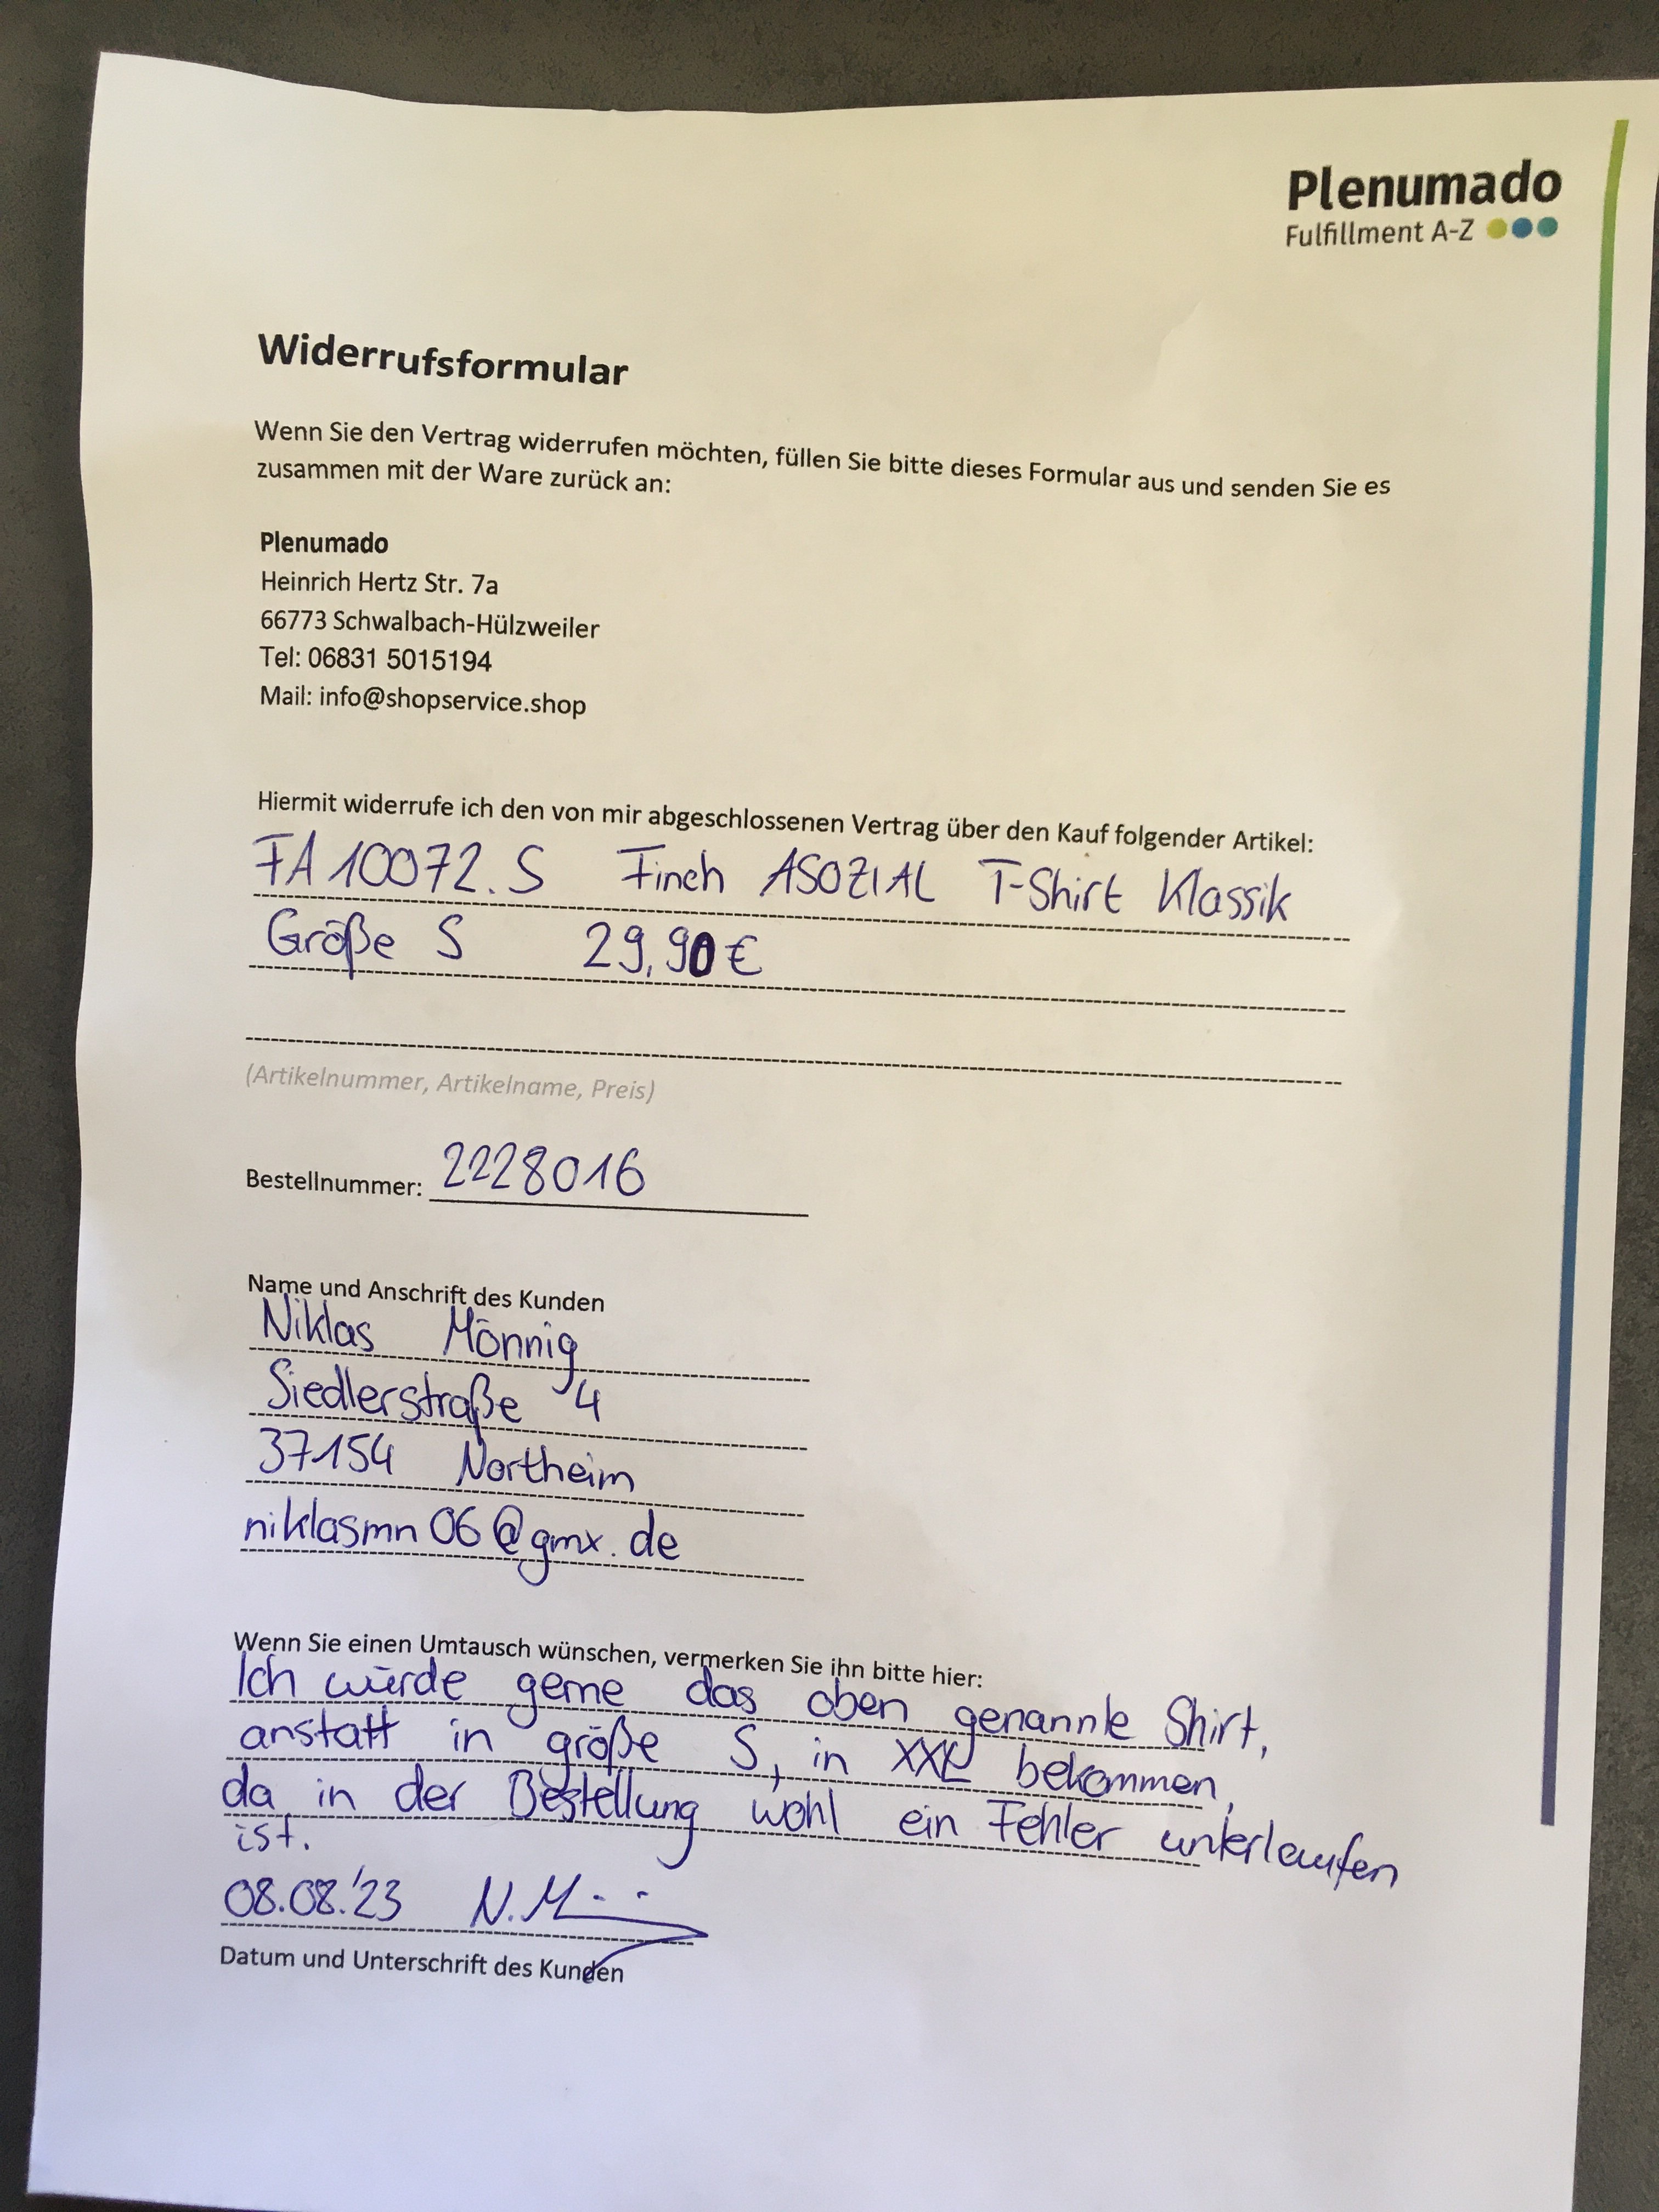 Plenumado
Fulfillment A-Z
Widerrufsformular
Wenn Sie den Vertrag widerrufen möchten, füllen Sie bitte dieses Formular aus und senden Sie es
zusammen mit der Ware zurück an:
Plenumado
Heinrich Hertz Str. 7a
66773 Schwalbach-Hülzweiler
Tel: 06831 5015194
Mail: info@shopservice.shop
Hiermit widerrufe ich den von mir abgeschlossenen Vertrag über den Kauf folgender Artikel:
FA10072.S Finch ASOZIAL T-Shirt Klassik
Größe S 29,90€
(Artikelnummer, Artikelname, Preis)
Bestellnummer: 2228016
Name und Anschrift des Kunden
Niklas Mönnig
Siedlerstraße 4
37154 Northeim
niklasmn06@gmx.de
Wenn Sie einen Umtausch wünschen, vermerken Sie ihn bitte hier:
Ich würde gerne das oben genannte Shirt,
anstatt in größe S, in XXL bekommen,
da in der Bestellung wohl ein Fehler unterlaufen
ist.
08.08.'23 N.M
Datum und Unterschrift des Kunden